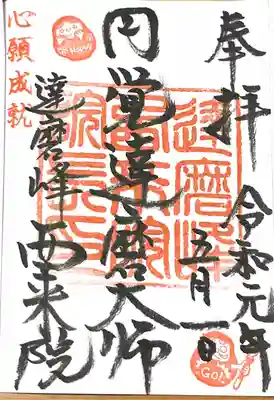 奉拝
令和元年
五月一日
円覚達磨大師
達磨峰
西来院
心願成就
Be Happy!
GO!